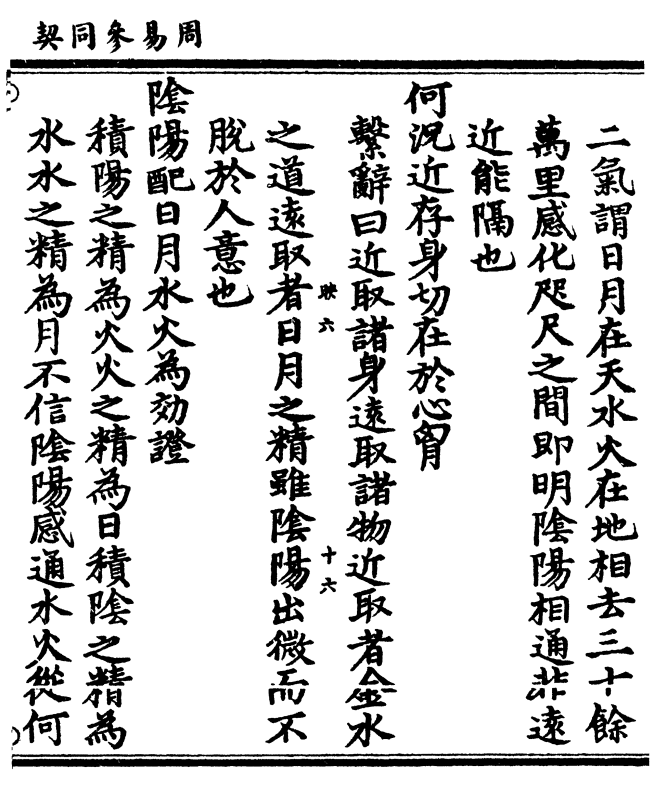 周易參同契
二氣謂日月在天水火在地相去三十餘
萬里感化咫尺之間即明陰陽相通非遠
近能隔也
何況近存身切在於心胷
繫辭曰近取諸身遠取諸物近取者金水
映六
十六
之道遠取者日月之精雖陰陽出微而不
脫於人意也
陰陽配日月水火為効證
積陽之精為火火之精為日積陰之精為
水水之精為月不信陰陽感通水火從何